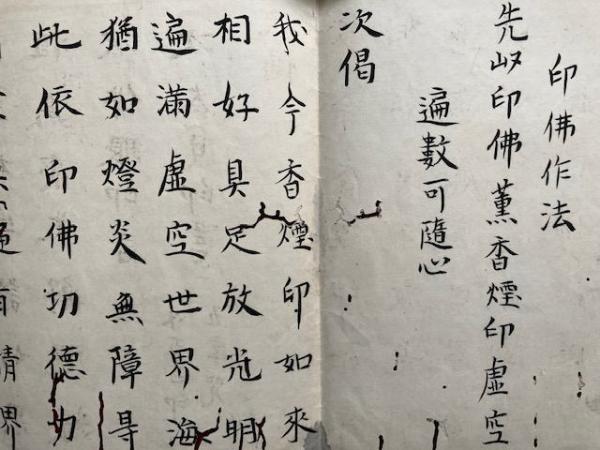 印佛作法
先以印佛薫香煙印虛空
遍數可隨心
次偈
我今香煙印如來
相好具足放光明
遍滿虛空世界海
猶如燈炎無障㝵
此依印佛功德力
有情界